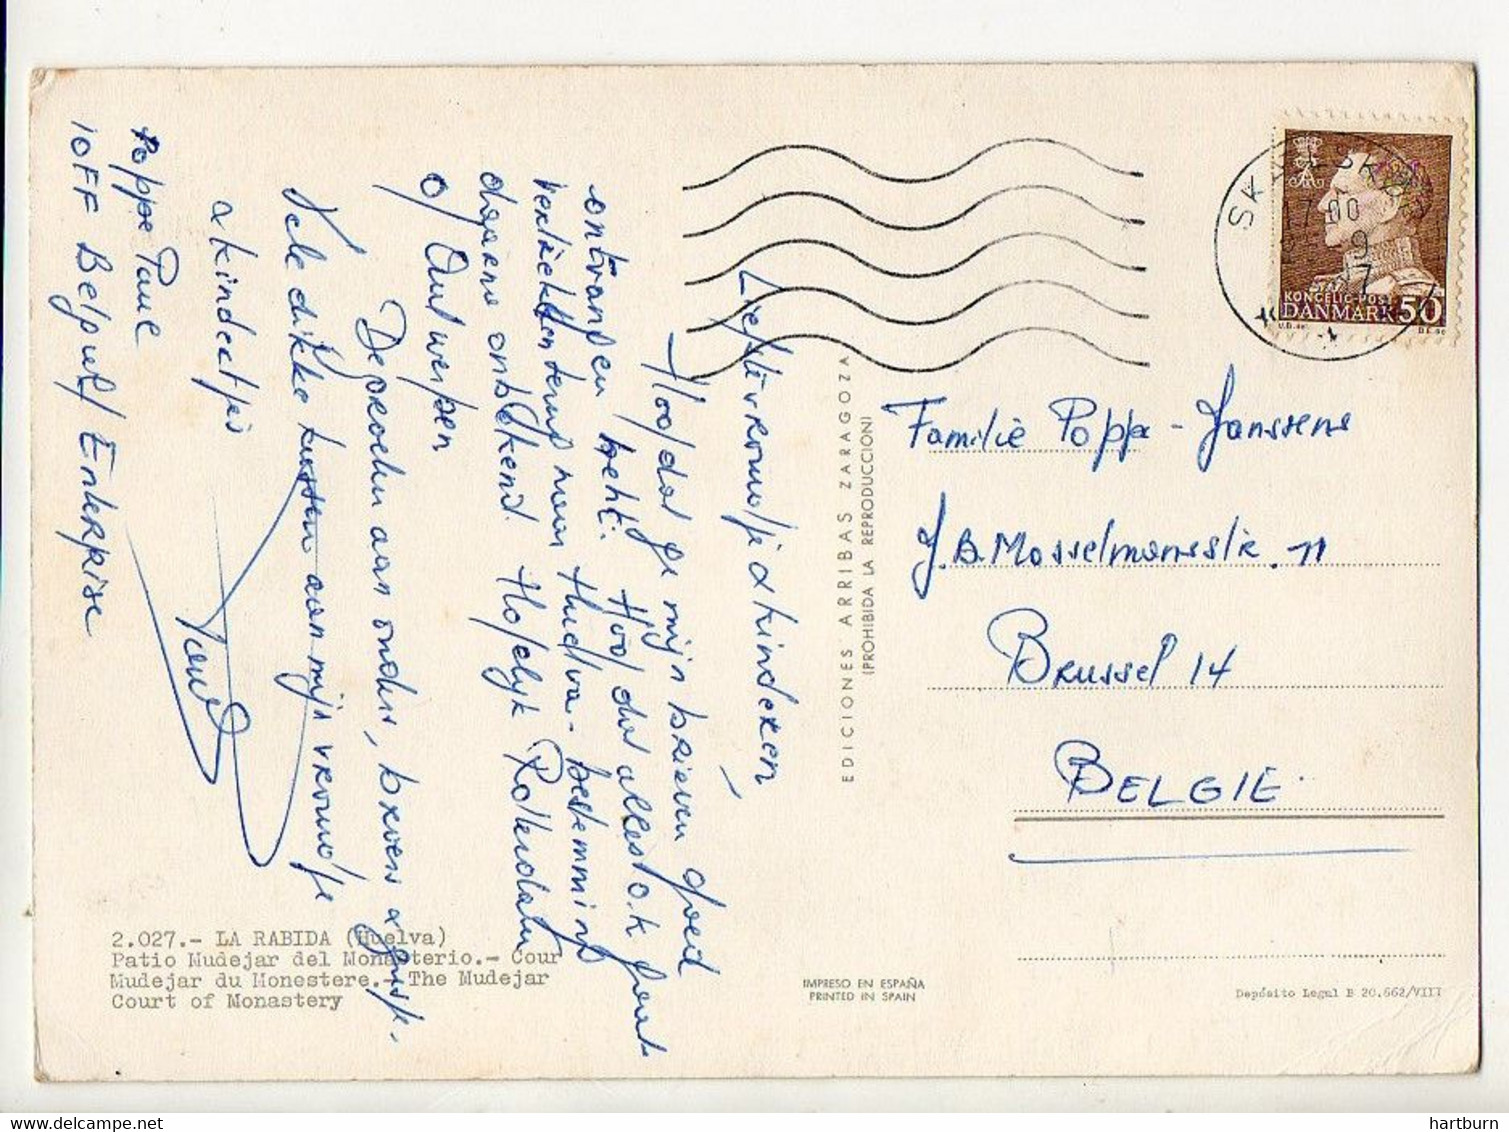 Liefste vrouwtje & kinderen,
Hoop dat ge mijn brieven goed
ontvangen hebt. Hoop dat alles o.k. gaat.
Vertrekken terug naar Huelva - bestemming
daarna onbekend. Hopelijk Rotterdam
of Antwerpen
De groeten aan ouders, broers &
Vele dikke kussen aan mijn vrouwtje
& kindertjes
Paul
Poppe Paul
10FF Belgul/Enterprise
SAKSKØB
17.00
9
KONGELIG POST
DANMARK 50
Familie Poppe - Janssens
J.B. Mosselmansstr. 11
Brussel 14
BELGIË
EDICIONES ARRIBAS ZARAGOZA
(PROHIBIDA LA REPRODUCCION)
2.027.- LA RABIDA (Huelva)
Patio Mudejar del Monasterio.- Cour
Mudejar du Monestere.- The Mudejar
Court of Monastery
IMPRESO EN ESPAÑA
PRINTED IN SPAIN
Depósito Legal B 20.662/VIII
hartburn